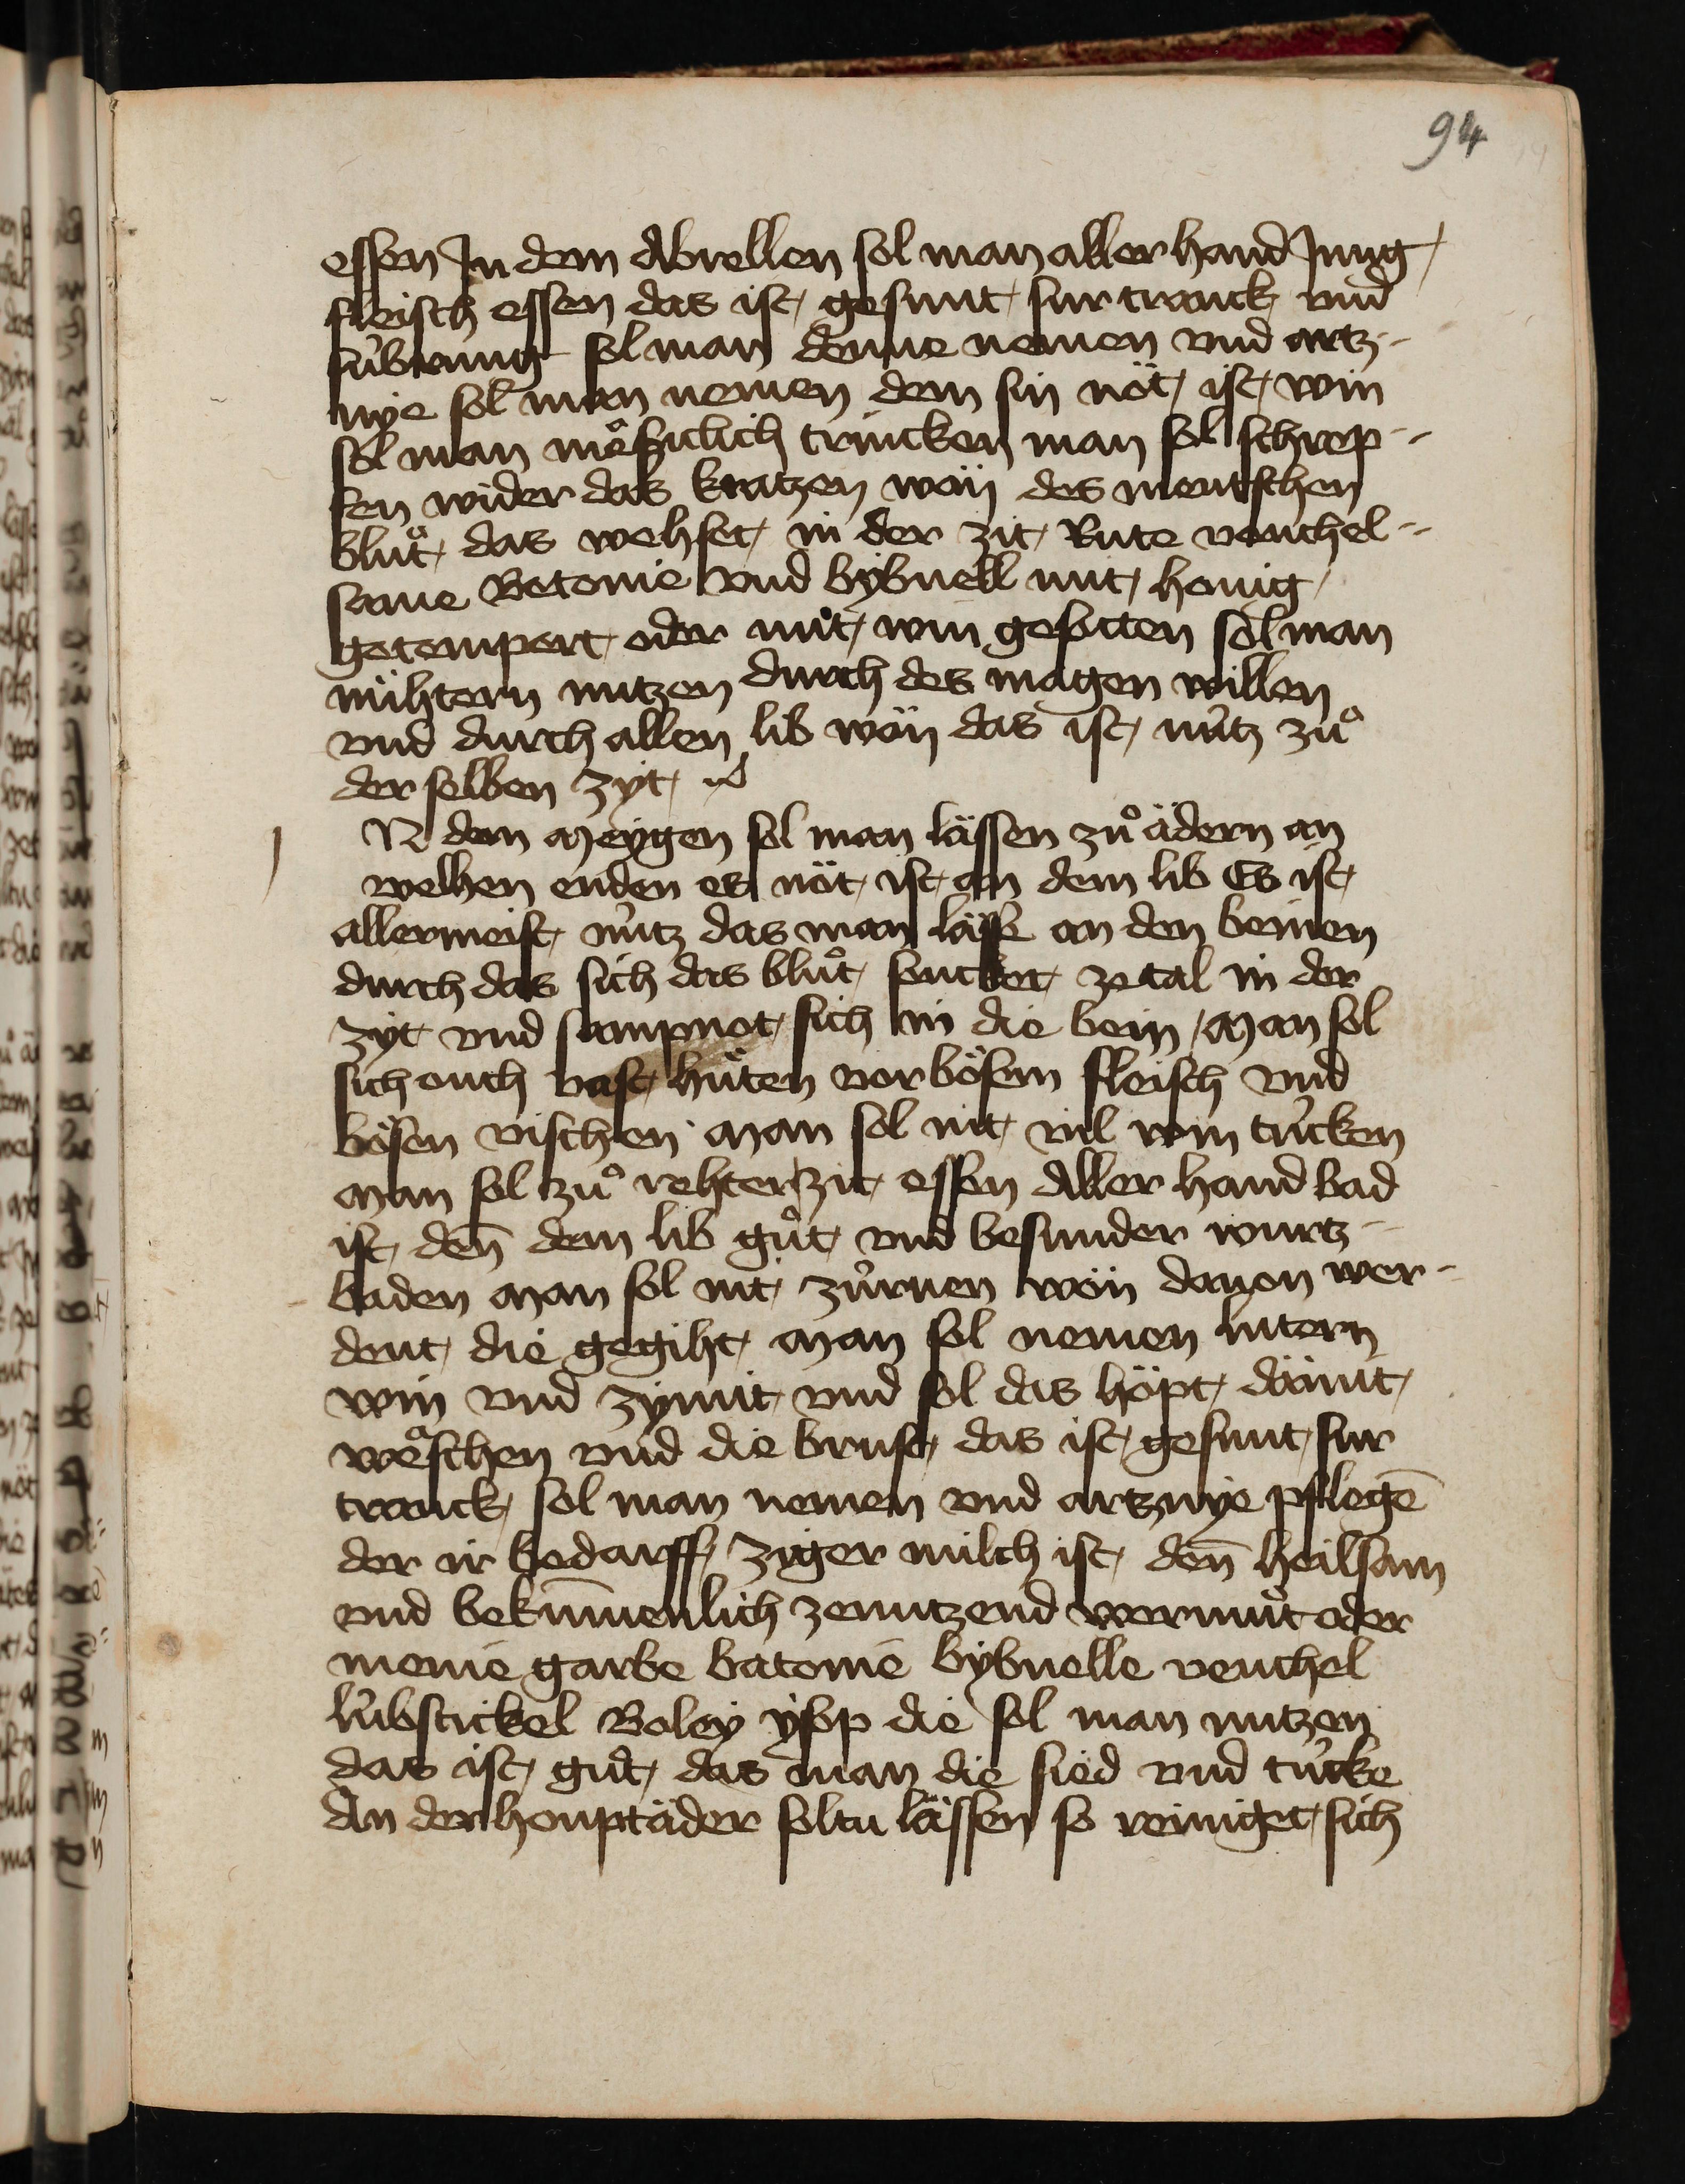 94
essen Jn dem Abrellen sol man aller hand Jung
fleisch essen das ist gesunt sur tranck vnd
sübrung sol man denne nemen vnd artz-
nye sol man nemen dem sin nöt ist win
sol man meͦssiclich trincken man sol schrep-
fen wider das kratzen wön des mentschen
bluͦt das wehset in der zit Rute venchel-
same Betonie vnd bybnell mit honig
getempert oder mit win gesotten sol man
nühtern nutzen durch des magen willen
vnd durch allen lib wön das ist nütz zuͦ
der selben zyt
N dem Meygen sol man lässen zuͦ ädern an
welhen enden es nöt ist an dem lib Es ist
allermeist nütz das man lässe an den beinen
durch das sich das bluͦt sencket ze tal in der
zyt vnd sampnot sich in die bein / Man sol
sich ouch vast huͤten vor bösem fleisch vnd
bösen vischen Man sol nit vil win trücken
Man sol zuͦ rehter zit essen Aller hand bad
ist den̄ dem lib guͦt vnd besunder wurtz-
baden Man sol nit zürnen wön dauon wer-
dent die gegiht Man sol nemen lutern
win vnd zymit vnd sol das höpt dämit
weͦschen vnd die brust das ist gesunt sur
tranck sol man nemen vnd artznye pflegē
der ir bedarff ziger milch ist den̄ heilsam
vnd bekum̄enlich ze nutzend wermuͦt oder
menie garbe batonie bybnelle venchel
lübstickel Boley ysop die sol man nutzen
das ist guͦt das man die sied vnd trücke
An der houptäder soltu lässen so reiniget sich